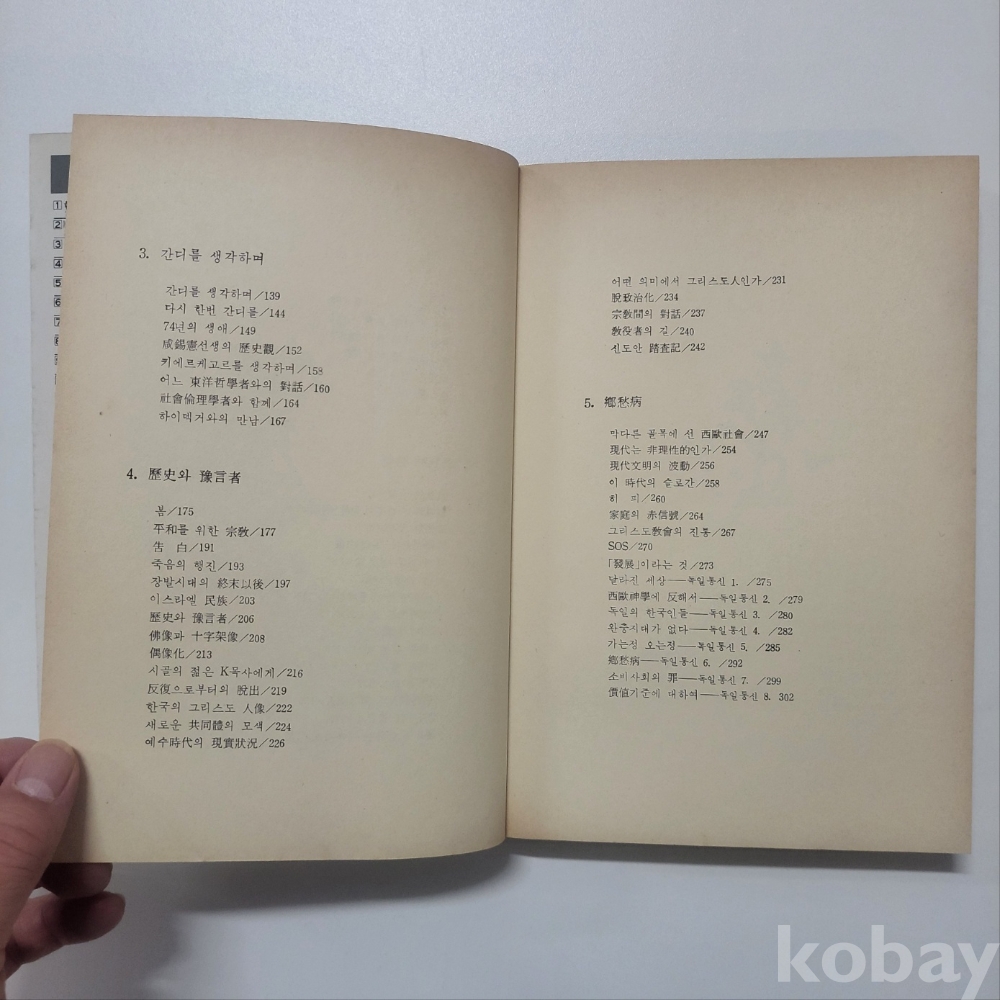 1
2
3
4
5
6
7
3. 간디를 생각하며
간디를 생각하며/139
다시 한번 간디를/144
74년의 생애/149
咸錫憲선생의 歷史觀/152
키에르케고르를 생각하며/158
어느 東洋哲學者와의 對話/160
社會倫理學者와 함께/164
하이덱거와의 만남/167
4. 歷史와 豫言者
봄/175
平和를 위한 宗敎/177
告 白/191
죽음의 행진/193
장발시대의 終末以後/197
이스라엘 民族/203
歷史와 豫言者/206
佛像과 十字架像/208
偶像化/213
시골의 젊은 K목사에게/216
反復으로부터의 脫出/219
한국의 그리스도 人像/222
새로운 共同體의 모색/224
예수時代의 現實狀況/226
어떤 의미에서 그리스도人인가/231
脫政治化/234
宗敎間의 對話/237
敎役者의 길/240
신도안 踏査記/242
5. 鄕愁病
막다른 골목에 선 西歐社會/247
現代는 非理性的인가/254
現代文明의 波動/256
이 時代의 슬로간/258
히 피/260
家庭의 赤信號/264
그리스도敎會의 진통/267
SOS/270
「發展」이라는 것/273
달라진 세상──독일통신 1. /275
西歐神學에 反해서──독일통신 2. /279
독일의 한국인들──독일통신 3. /280
완충지대가 없다──독일통신 4. /282
가는정 오는정──독일통신 5. /285
鄕愁病──독일통신 6. /292
소비사회의 罪──독일통신 7. /299
價値기준에 대하여──독일통신 8. 302
kobay